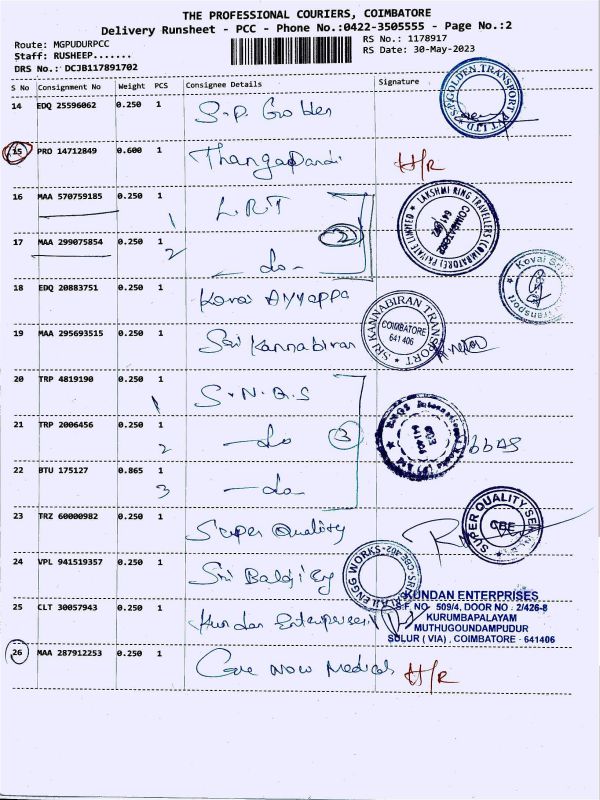 THE PROFESSIONAL COURIERS, COIMBATORE
Delivery Runsheet - PCC - Phone No.:0422-3505555 - Page No.:2
Route: MGPUDURPCC
RS No.: 1178917
Staff: RUSHEEP.......
RS Date: 30-May-2023
DRS No.: DCJB117891702
S No Consignment No Weight PCS Consignee Details Signature
14 EDQ 25596062 0.250 1 S.P. Golden
S.P.GOLDEN TRANSPORT PVT LTD
15 PRO 14712849 0.600 1 Thangapandi H/R
16 MAA 570759185 0.250 1 L.R.T
1
LAKSHMI RING TRAVELLERS (COIMBATORE) PRIVATE LIMITED
COIMBATORE
2
17 MAA 299075854 0.250 1 - do -
2
18 EDQ 20883751 0.250 1 Kovai Ayyappa
Transport
19 MAA 295693515 0.250 1 Sri Kannabiran
SRI KANNABIRAN TRANSPORT
COIMBATORE
641 406
20 TRP 4819190 0.250 1 S.N.B.S
1
21 TRP 2006456 0.250 1 - do
2
3
22 BTU 175127 0.865 1 - do
3
23 TRZ 60000982 0.250 1 Super Quality
SUPER QUALITY
CBE
24 VPL 941519357 0.250 1 Sri Balaji Eng
ENGG WORKS
25 CLT 30057943 0.250 1 Kundan Enterprises
KUNDAN ENTERPRISES
S.F. NO. 509/4, DOOR NO : 2/426-8
KURUMBAPALAYAM
MUTHUGOUNDAMPUDUR
SULUR (VIA), COIMBATORE - 641406
26 MAA 287912253 0.250 1 Care Now Medical H/R